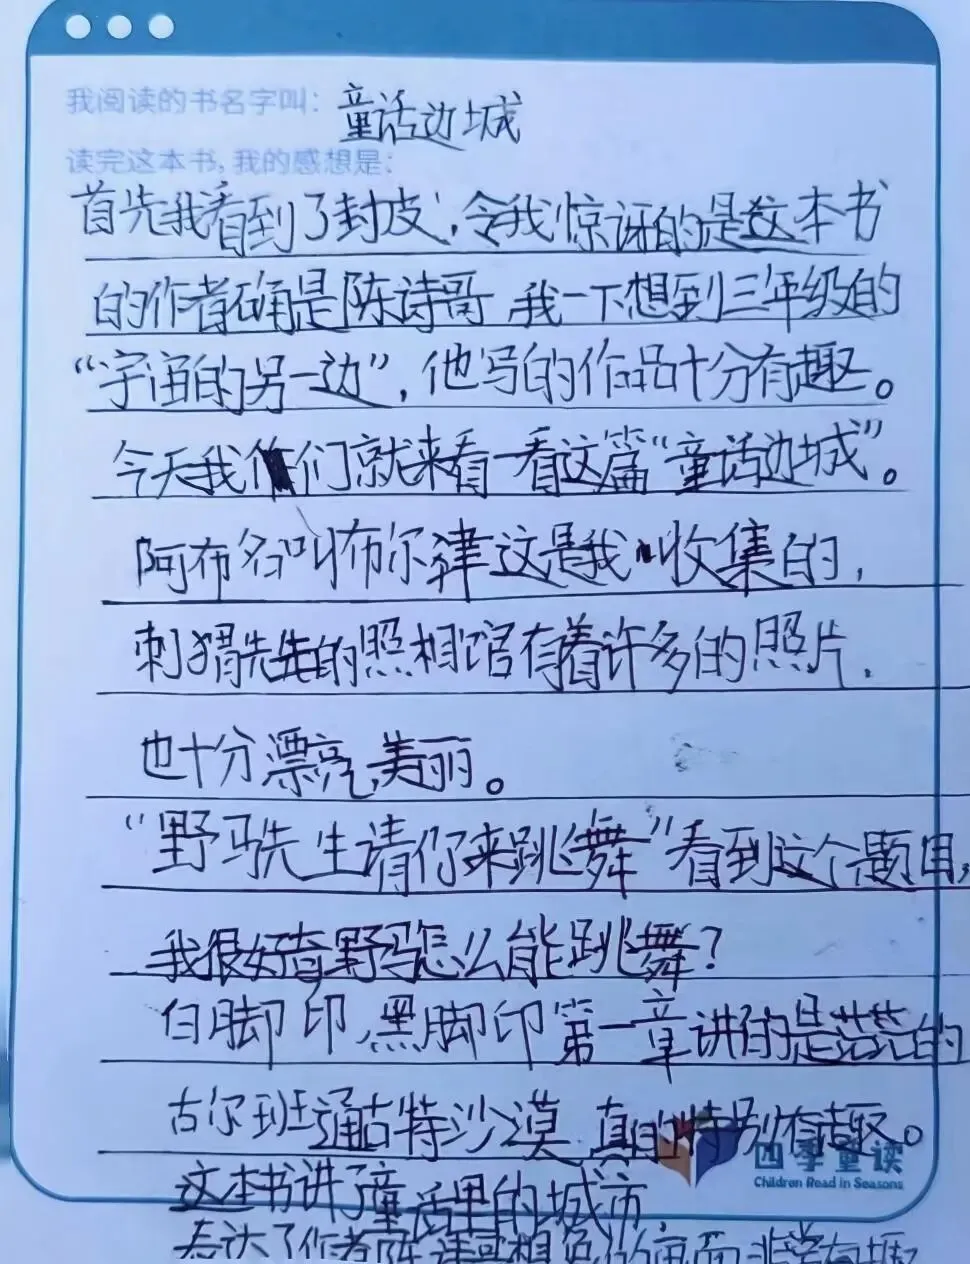 我阅读的书名字叫：童话边城
读完这本书，我的感想是：
首先我看到了封皮，令我惊讶的是这本书
的作者确是陈诗哥，我一下想到三年级的
“宇宙的另一边”，他写的作品十分有趣。
今天我们就来看一看这篇“童话边城”。
阿布名叫布尔津这是我收集的，
刺猬先生的照相馆有着许多的照片，
也十分漂亮，美丽。
“野马先生请你来跳舞”看到这个题目，
我很好奇野马怎么能跳舞？
白脚印，黑脚印第一章讲的是茫茫的
古尔班通古特沙漠，真的特别有趣。
四季童读
Children Read in Seasons
这本书讲了童话里的城市，
表达了作者陈诗哥想象的